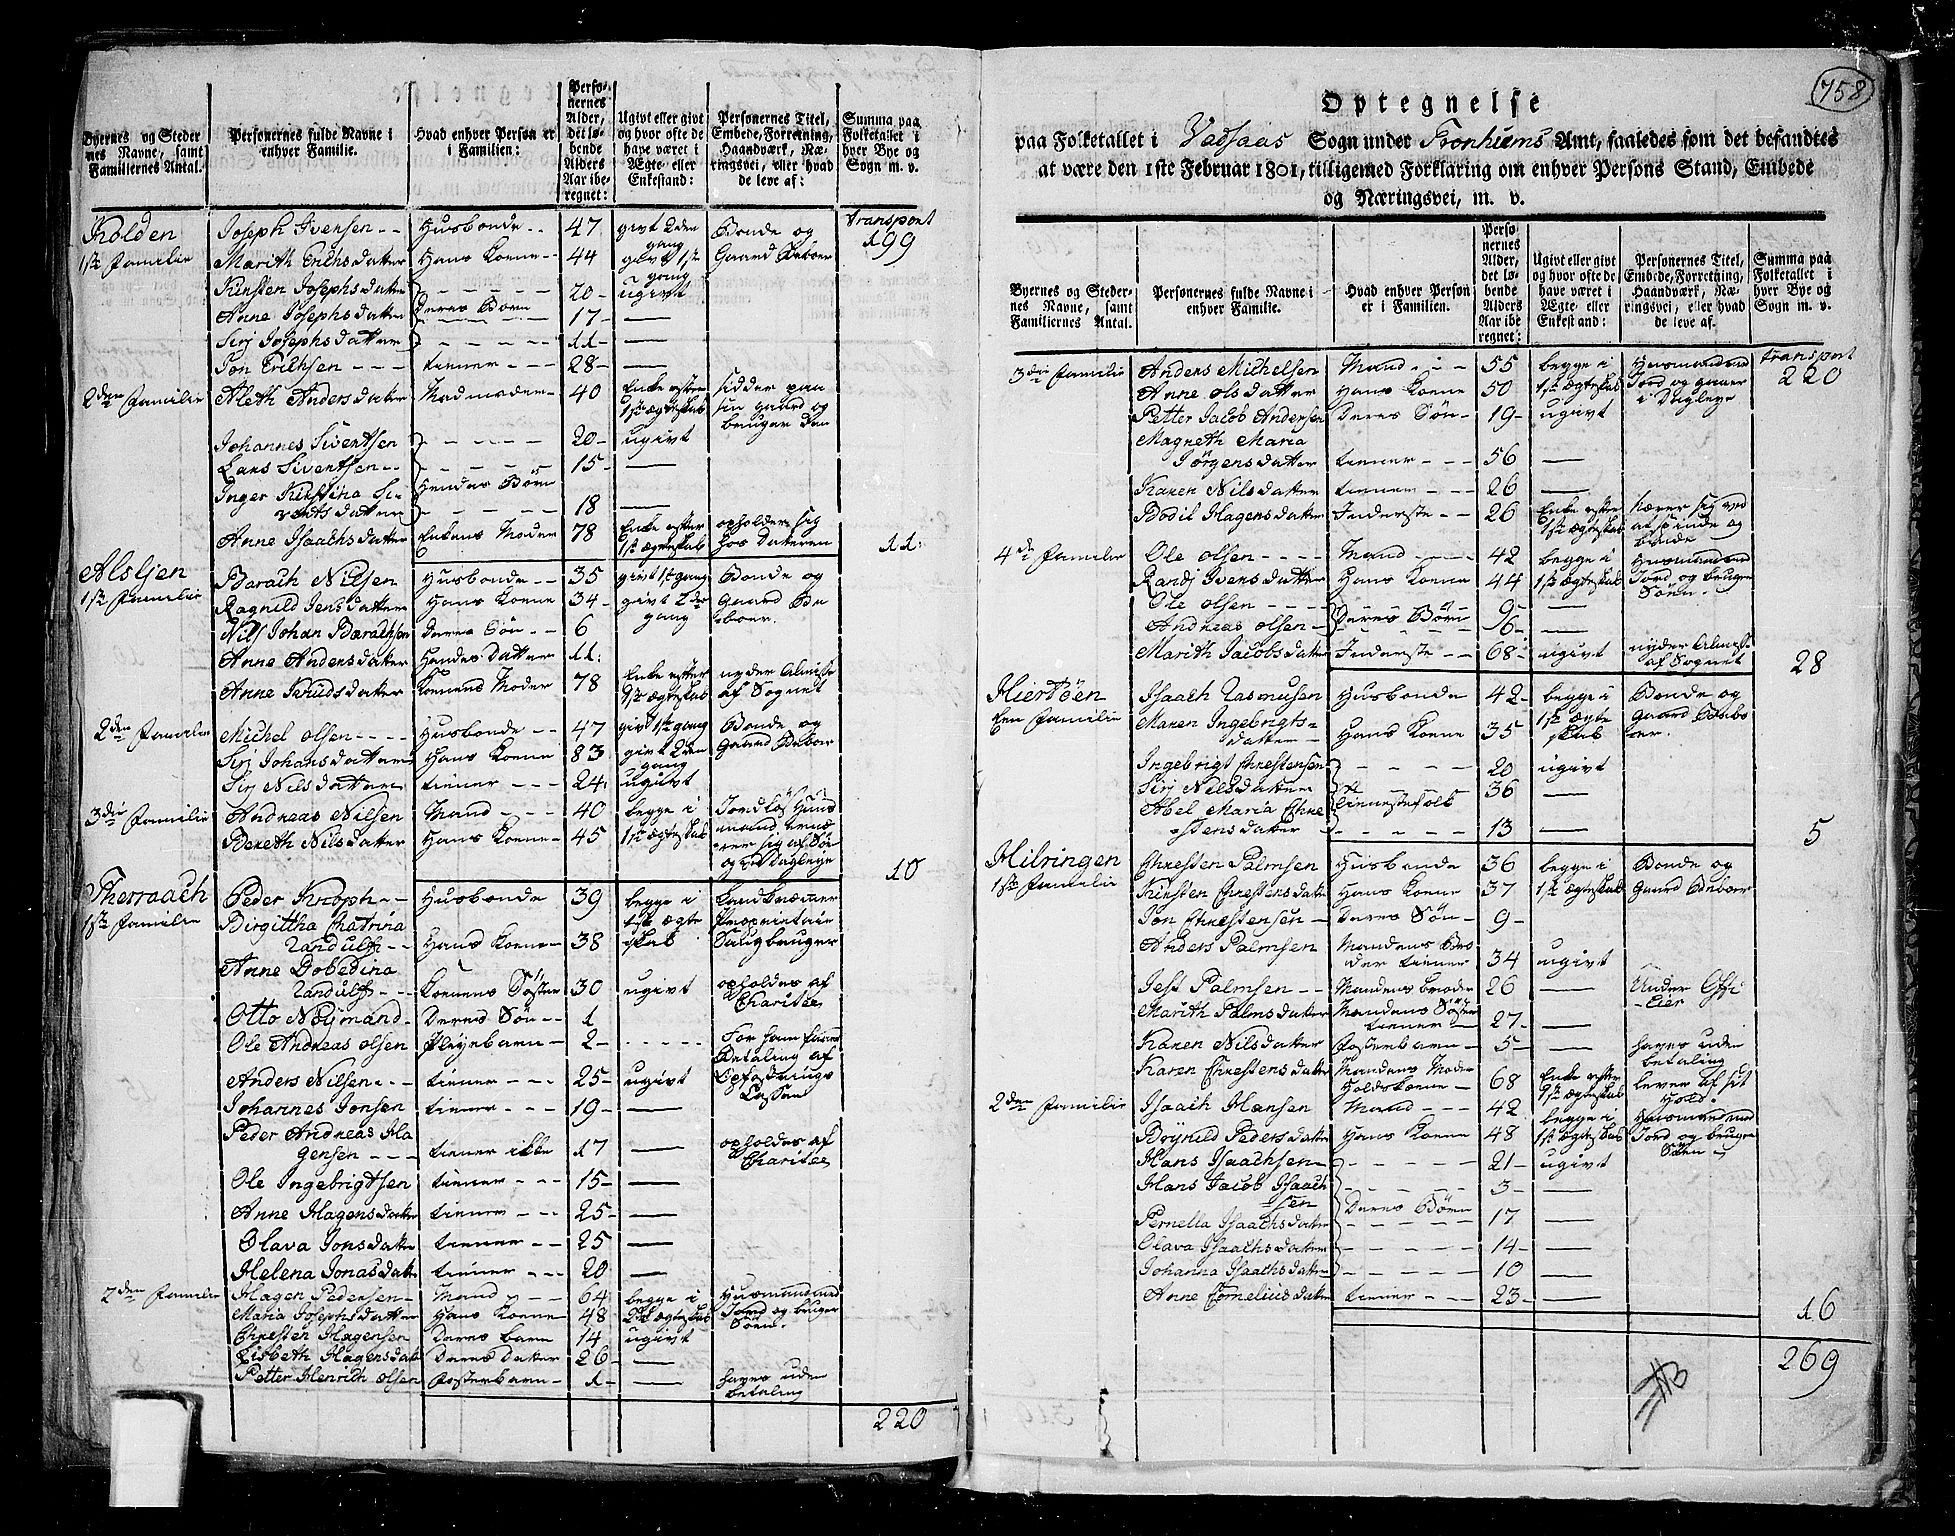 Byernes og Steder nes Navne, samt Familiernes Antal. | Personernes fulde Navne i enhver Familie. | Hvad enhver Person er i Familien: | Personernes Alder, det løbende Alders Aar iberegnet: | Ugivt eller givt og hvor ofte de have været i Ægte eller Enkestand: | Personernes Titel, Embede, Forretning, Haandværk, Næringsvei, eller hvad de leve af: | Summa paa Folketallet i hver Bye og Sogn m. v.
Kolden | Joseph Iversen | Husbonde | 47 | givt 2den gang | Bonde og | transport 199
1ste Familie | Marith Erichsdatter | Hans Kone | 44 | givt 1ste gang | Gaard Beboer
Kirsten Josephsdatter | | 20 | ugivt
Anne Josephsdatter | Deres Børn | 17 | —
Siri Josephsdatter | | 11 | —
Jon Erichsen | tiener | 28 | —
2den Familie | Aleth Andersdatter | Madmoder | 40 | Enke efter 1ste ægteskab | sidder paa sin gaard og bruger den
Johannes Sivertsen | | 20 | ugivt
Lars Sivertsen | | 15 | —
Inger Kirstina Si-
vertsdatter | Hendes Børn | 18 | —
Anne Isaachsdatter | Enkens Moder | 78 | Enke efter 1ste ægteskab | opholder sig hos Datteren | 11
Alsljen | Barach Nilsen | Husbonde | 35 | givt 1ste gang | Bonde og
1ste Familie | Ragnild Jensdatter | Hans Kone | 34 | givt 2den gang | Gaard Beboer.
Nils Johan Barachsen | Deres Søn | 6
Anne Andersdatter | Hendes Datter | 11
Anne Knudsdatter | Konens Moder | 78 | Enke efter 1ste ægteskab | nyder Almisse af Sognet
2den Familie | Michel Olsen | Husbonde | 47 | givt 1ste gang | Bonde og
Siri Johansdatter | Hans Kone | 83 | givt 2den gang | Gaard Beboer
Siri Nilsdatter | tiener | 24 | ugivt
3die Familie | Andreas Nilsen | Mand | 40 | begge i | Jordløs Huus
Bereth Nilsdatter | Hans Kone | 45 | 1ste ægteskab | mand, nærer sig af Søe og ved Dagleye | 10
Therraach | Peder Knoph | Husbonde | 39 | begge i | Landkræmer
1ste Familie | Birgittha Chatrina
Randulff | Hans Kone | 38 | 1ste ægteskab | Proprietair Saugbruger
Anne Dobedina
Randulff | Konens Søster | 30 | ugivt | opholdes af Charitee
Otto Nøymand | Deres Søn | 1
Ole Andreas Olsen | Pleyebarn | 2 | | For ham faaes Betaling af Opfostrings Cassen
Anders Nilsen | tiener | 25 | ugivt
Johannes Jonsen | tiener | 19 | —
Peder Andreas Ha
gensen | tiener ikke | 17 | — | opholdes af Charitee
Ole Ingebrigtsen | tiener | 15 | —
Anne Hagensdatter | tiener | 25 | —
Olava Jonsdatter | tiener | 25 | —
Helena Jonasdatter | tiener | 20 | —
2den Familie | Hagen Pedersen | Mand | 64 | begge i | Husmand med
Maria Josephsdatter | Hans Kone | 48 | 2det ægteskab | Jord og bruger Søen.
Christen Hagensen | Deres barn | 14 | ugivt
Lisbeth Hagensdatter | Deres Datter | 26 | —
Petter Henrich Olsen | Fosterbarn | 1 | — | haves uden betaling
220
758
Optegnelse
paa Folketallet i Vatsaas Sogn under Tronhiems Amt, saaledes som det befandtes
at være den 1ste Februar 1801, tilligemed Forklaring om enhver Persons Stand, Embede
og Næringsvei, m. v.
Byernes og Stedernes Navne, samt Familiernes Antal. | Personernes fulde Navne i enhver Familie. | Hvad enhver Person er i Familien. | Personernes Alder, det løbende Alders Aar iberegnet: | Ugivt eller givt og hvor ofte de have været i Ægte eller Enkestand: | Personernes Titel, Embede, Forretning, Haandværk, Næringsvei, eller hvad de leve af. | Summa paa Folketallet i hver Bye og Sogn m. v.
3die Familie | Anders Michelsen | Mand | 55 | begge i | Husmand med | transport 220
Anne Olsdatter | Hans Kone | 50 | 1ste ægteskab | Jord og gaaer i Dagleye
Petter Jacob Andersen | Deres Søn | 19 | ugivt
Magreth Maria
Jørgensdatter | tiener | 56 | —
Karen Nilsdatter | tiener | 26 | —
Bodil Hagensdatter | Inderste | 26 | Enke efter 1ste ægteskab | nærer sig ved at spinde og binde
4de Familie | Ole Olsen | Mand | 42 | begge i | Husmand med
Randi Iversdatter | Hans Kone | 44 | 1ste ægteskab | Jord og bruger Søen.
Ole Olsen | | 9 | —
Andreas Olsen | Deres Børn | 6 | —
Marith Jacobsdatter | Inderste | 68 | ugivt | nyder Almisse af Sognet | 28
Hiertøen | Isaach Rasmusen | Husbonde | 42 | begge i | Bonde og
Een Familie | Maren Ingebrigts-
datter | Hans Kone | 35 | 1ste ægteskab | Gaard Beboer.
Ingebrigt Christensen | | 20 | ugivt
Siri Nilsdatter | Tienestefolk | 36 | —
Abel Maria Chri
stensdatter | | 13 | — | | 5
Hilringen | Christen Palmsen | Husbonde | 36 | begge i | Bonde og
1ste Familie | Kirsten Christensdatter | Hans Kone | 37 | 1ste ægteskab | Gaard Beboer
Jon Christensen | Deres Søn | 9
Anders Palmsen | Mandens Broder tiener | 34 | ugivt
Jess Palmsen | Mandens broder | 26 | — | Under Officier
Marith Palmsdatter | Mandens Søster tiener | 27 | —
Karen Nilsdatter | Fosterbarn | 5 | — | haves uden betaling
Karen Christensdatter | Mandens Moder Holdskone | 68 | Enke efter 1ste ægteskab | lever af sit Hold.
2den Familie | Isaach Hansen | Mand | 42 | begge i | Husmand med
Brynild Pedersdatter | Hans Kone | 48 | 1ste ægteskab | Jord og bruger Søen
Hans Isaachsen | | 21 | ugivt
Hans Jacob Isaach
sen | | 3 | —
Pernella Isaachsdatter | Deres Børn | 17 | —
Olava Isaachsdatter | | 14 | —
Johanna Isaachsdatter | | 10 | —
Anne Corneliusdatter | tiener | 23 | — | | 16
269